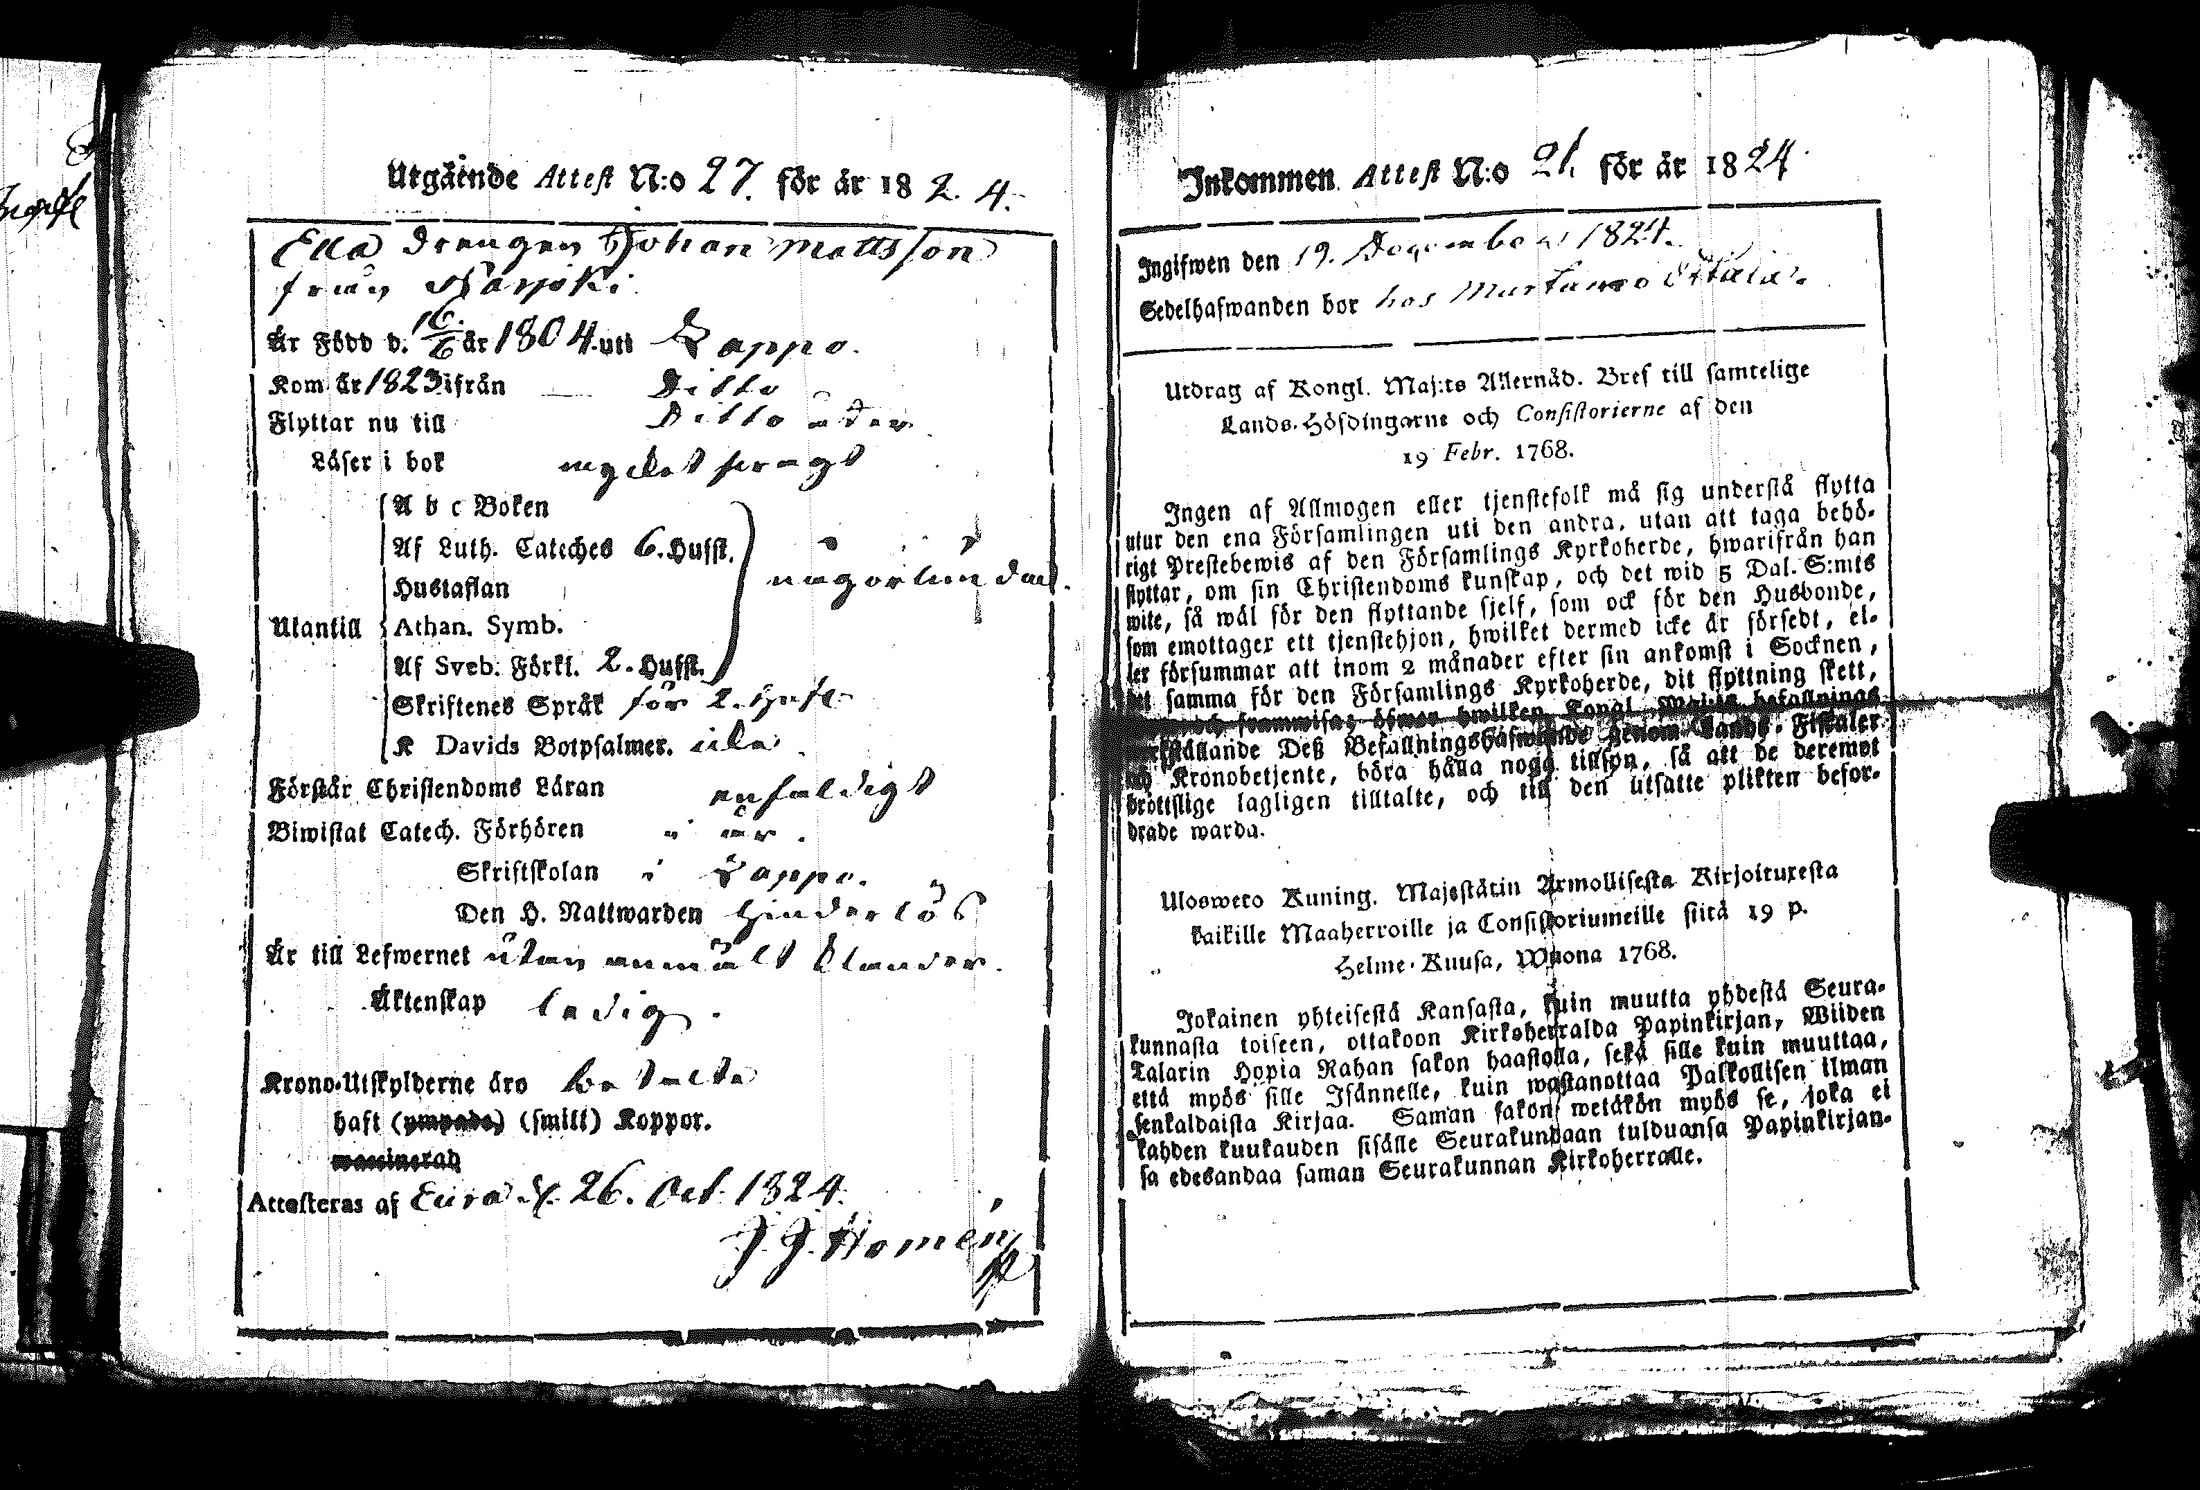 Utgående Attest N:o 27. för år 182.4.
Drengen Johan Mattsson
från
Är Född d. 16/6 år 1804. uti Lappo.
Kom år 1823 ifrån Ditto
Flyttar nu till Ditto åter
Läser i bok mycket swagt
A b c Boken
Af Luth. Cateches 6. Hufst.
någorlunda
Hustaflan
Utantill
Athan. Symb.
Af Sveb. Förkl. 2. Hufst.
Skriftenes Språk för 2. Hufst.
K Davids Botpsalmer. icke.
Förstår Christendoms Läran enfaldigt
Biwistat Catech. Förhören i år.
Skriftskolan i Lappo.
Den H. Nattwarden hinderlös
Är till Lefwernet utan anmält klander.
Äktenskap ledig.
Krono-Utskylderne äro betalta
haft (ympade) (smitt) Koppor.
waccinerad
Attesteras af Eura d. 26. Oct. 1824.
J. J. Homén
Inkommen Attest N:o 21. för år 1824.
Ingifwen den 19. December 1824.
Sedelhafwanden bor hos
Utdrag af Kongl. Maj:ts Allernåd. Bref till samtelige
Lands-Höfdingarne och Consistorierne af den
19 Febr. 1768.
Ingen af Allmogen eller tjenstefolk må sig understå flytta
utur den ena Församlingen uti den andra, utan att taga behö-
rigt Prestebewis af den Församlings Kyrkoherde, hwarifrån han
flyttar, om sin Christendoms kunskap, och det wid 5 Dal. S:mts
wite, så wäl för den flyttande sjelf, som ock för den Husbonde,
som emottager ett tjenstehjon, hwilket dermed icke är försedt, el-
ler försummar att inom 2 månader efter sin ankomst i Socknen,
det samma för den Församlings Kyrkoherde, dit flyttning skett,
framwisa; öfwer hwilken Kongl. Maj:ts befallnings
werkställande Deß Befallningshafwande genom Lands-Fiskaler
och Kronobetjente, böra hålla noga tillsyn, så att de deremot
brottslige lagligen tilltalte, och till den utsatte plikten befor-
drade warda.
Ulosweto Kuning. Majestätin Armollisesta Kirjoituxesta
kaikille Maaherroille ja Consistoriumeille siitä 19 p.
Helme-Kuusa, Wuona 1768.
Jokainen yhteisestä Kansasta, kuin muutta yhdestä Seura-
kunnasta toiseen, ottakoon Kirkoherralda Papinkirjan, Wiiden
Talarin Hopia Rahan sakon haastolla, sekä sille kuin muuttaa,
että myös sille Isännelle, kuin wastanottaa Palkollisen ilman
senkaldaista Kirjaa. Saman sakon wetäkön myös se, joka ei
kahden kuukauden sisälle Seurakundaan tulduansa Papinkirjan-
sa edesandaa saman Seurakunnan Kirkoherralle.